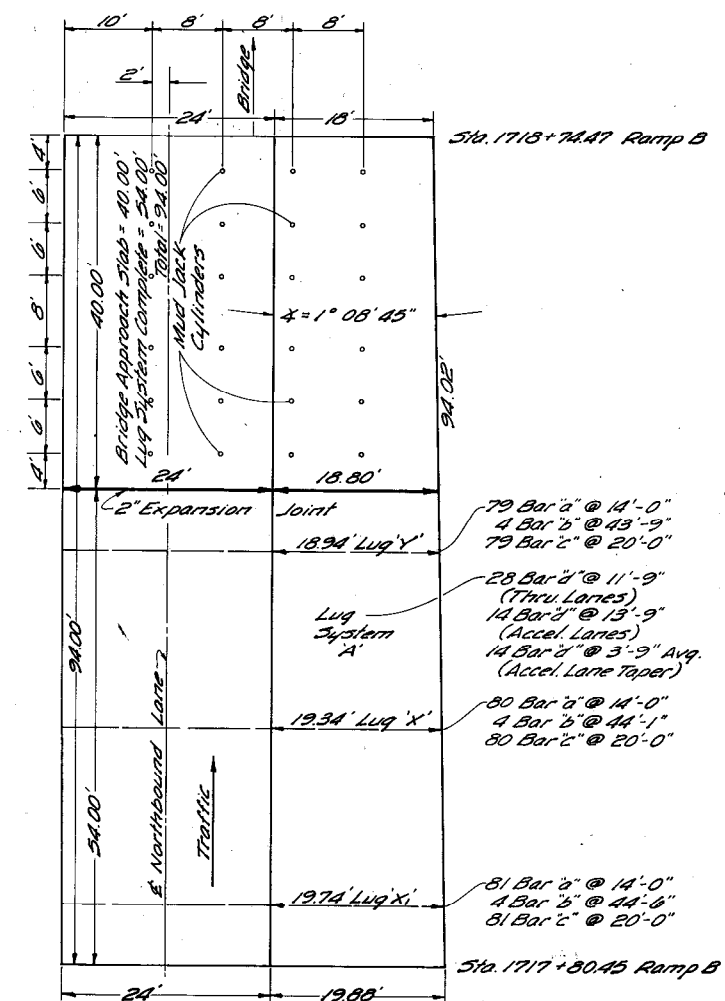 10'
8'
8'
8'
2'
Bridge
24'
18'
Sta. 1718+74.47 Ramp B
4'
6'
6'
8'
6'
6'
4'
40.00'
Bridge Approach Slab = 40.00'
Lug System Complete = 54.00'
Total = 94.00'
Mud Jack
Cylinders
∡ = 1° 08' 45"
94.02'
24'
18.80'
2" Expansion Joint
18.94' Lug 'Y'
79 Bar "a" @ 14'-0"
4 Bar "b" @ 43'-9"
79 Bar "c" @ 20'-0"
Lug
System
'A'
28 Bar "d" @ 11'-9"
(Thru. Lanes)
14 Bar "d" @ 13'-9"
(Accel. Lanes)
14 Bar "d" @ 3'-9" Avg.
(Accel. Lane Taper)
94.00'
54.00'
℄ Northbound Lane
Traffic
19.34' Lug 'X'
80 Bar "a" @ 14'-0"
4 Bar "b" @ 44'-1"
80 Bar "c" @ 20'-0"
19.74' Lug 'X₁'
81 Bar "a" @ 14'-0"
4 Bar "b" @ 44'-6"
81 Bar "c" @ 20'-0"
Sta. 1717+80.45 Ramp B
24'
19.88'